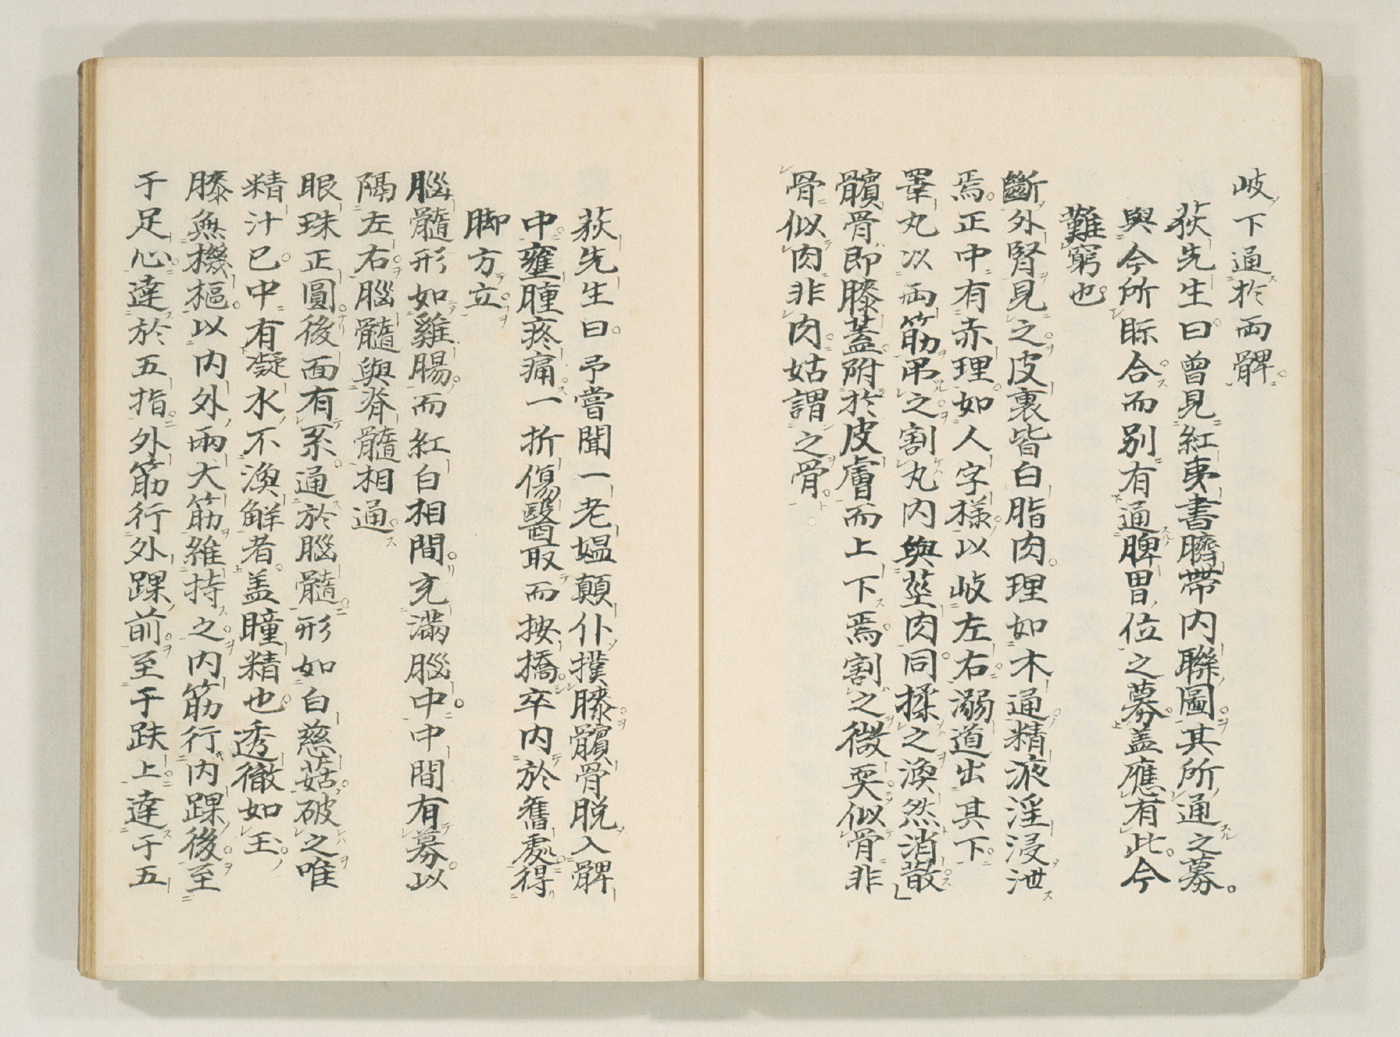 岐下通於兩髀
荻先生曰曾見紅夷書臍帶内聯圖其所通之募
與今所眎合而别有通脾胃位之募盖應有此今
難窮也
斷外腎見之皮裏皆白脂肉理如木通精液淫浸泄
焉正中有赤理如人字樣以岐左右溺道出其下
睪丸以兩筋吊之割丸内與莖肉同揉之渙然消散
髕骨即膝蓋附於皮膚而上下焉割之微耎似骨非
骨似肉非肉姑謂之骨
荻先生曰予嘗聞一老媼顛仆撲膝髕骨脱入髀
中壅腫疼痛一折傷醫取而按撟卒内於舊處得
脚方立
腦髓形如雞腸而紅白相間充滿腦中中間有募以
隔左右腦髓與脊髓相通
眼珠正圓後面有系通於腦髓形如白慈菇破之唯
精汁已中有凝水不渙鮮者盖瞳精也透徹如玉
膝無機樞以内外兩大筋維持之内筋行内踝後至
于足心達於五指外筋行外踝前至于趺上達于五